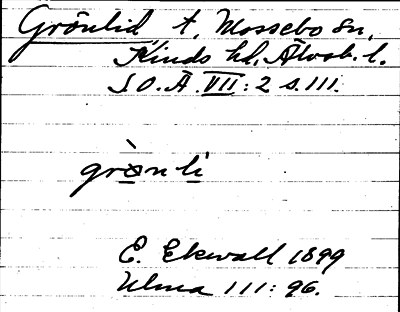 Grönlid t. Mossebo sn,
Kinds hd, Älvsb. l.
S O. Ä VII: 2 s. 111.
grò̱nli̱
E. Ekwall 1899
Ulma 111: 96.